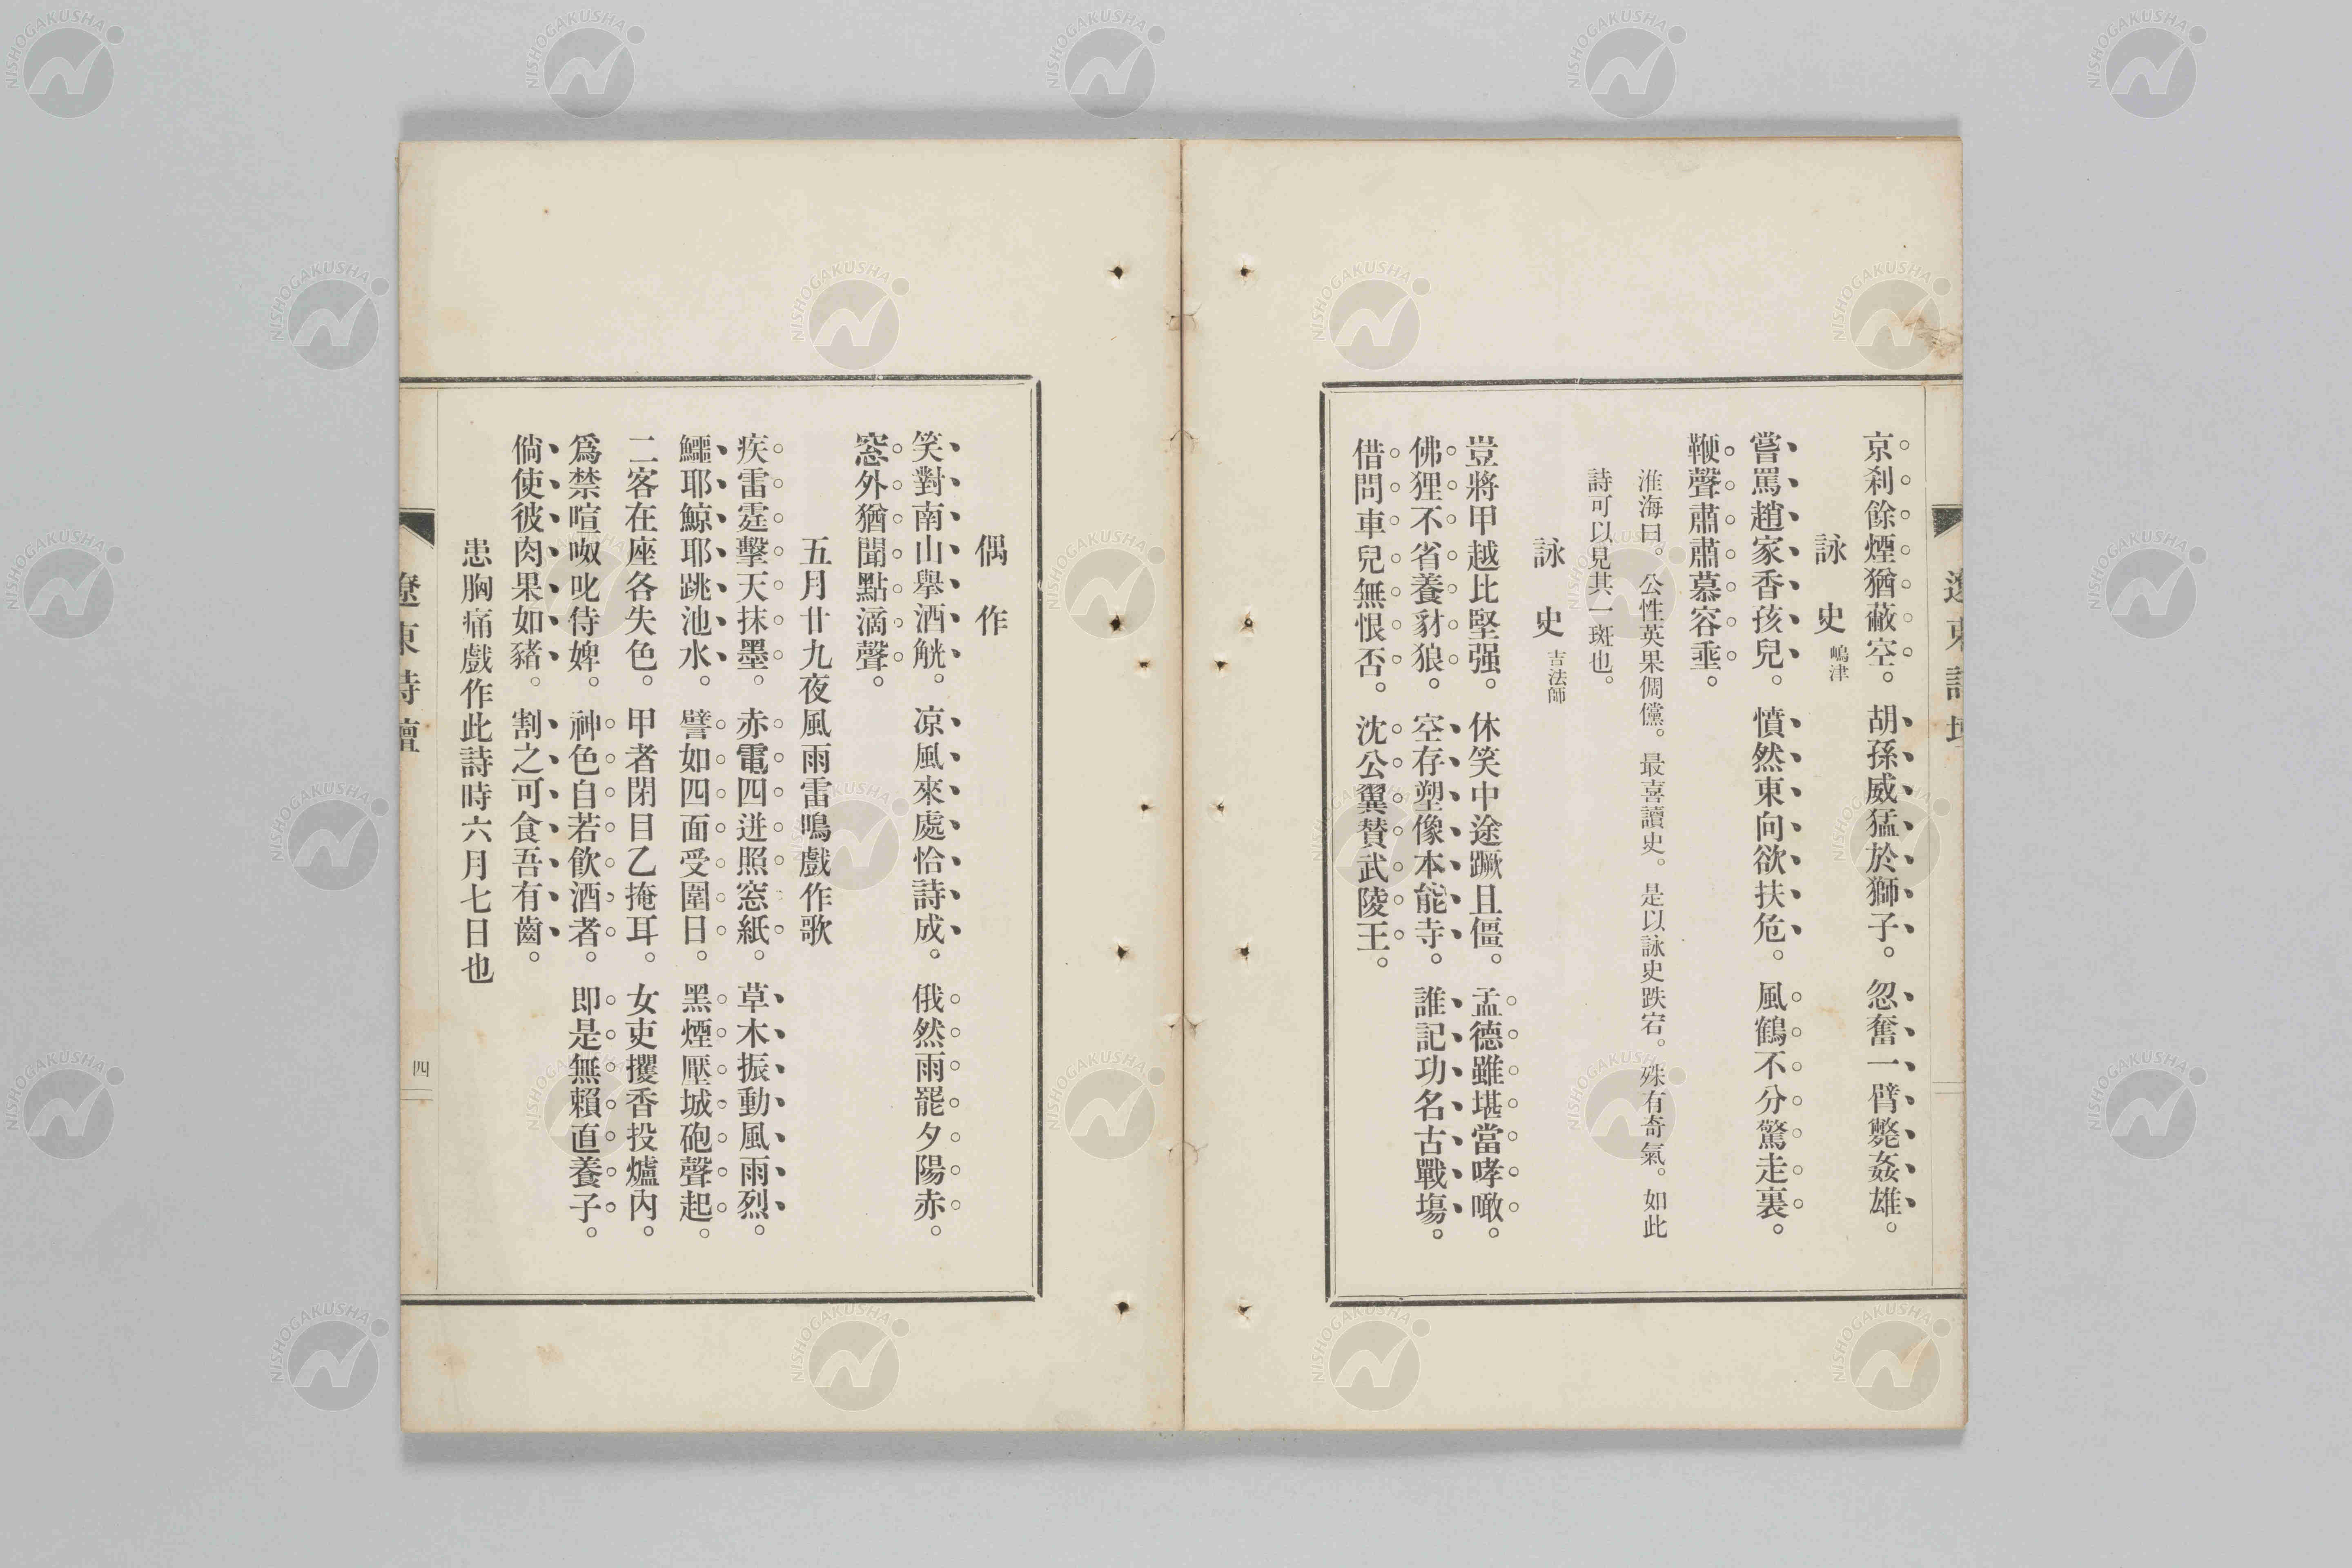 京刹餘煙猶蔽空。胡孫威猛於獅子。忽奮一臂斃姦雄。
詠史 嶋津
嘗罵趙家香孩兒。憤然東向欲扶危。風鶴不分驚走裏。
鞭聲肅肅慕容垂。
淮海曰。公性英果倜儻。最喜讀史。是以詠史跌宕。殊有奇氣。如此
詩可以見其一斑也。
詠史 吉法師
豈將甲越比堅强。休笑中途蹶且僵。孟德雖堪當哮噉。
佛狸不省養豺狼。空存塑像本能寺。誰記功名古戰塲。
借問車兒無恨否。沈公翼賛武陵王。
偶作
笑對南山擧酒觥。凉風來處恰詩成。俄然雨罷夕陽赤。
窓外猶聞點滴聲。
五月廿九夜風雨雷鳴戲作歌
疾雷霆擊天抹墨。赤電四迸照窓紙。草木振動風雨烈。
鱷耶鯨耶跳池水。譬如四面受圍日。黑煙壓城砲聲起。
二客在座各失色。甲者閉目乙掩耳。女吏攫香投爐內。
爲禁喧呶叱侍婢。神色自若飮酒者。即是無賴直養子。
倘使彼肉果如豬。割之可食吾有齒。
患胸痛戲作此詩時六月七日也
遼東詩壇
四